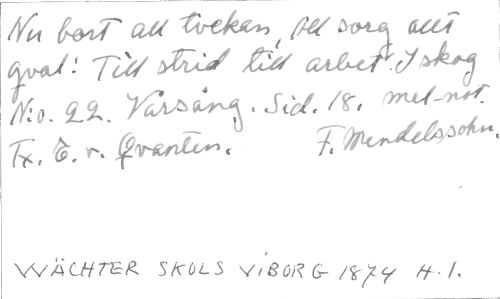 Nu bort all tvekan, all sorg allt
qval! Till strid till arbet. I skog
N:o. 22. Vårsång. Sid. 18. mel-not.
Tx. E. v. Qvanten. F. Mendelssohn.
WÄCHTER SKOLS VIBORG 1874 H.1.